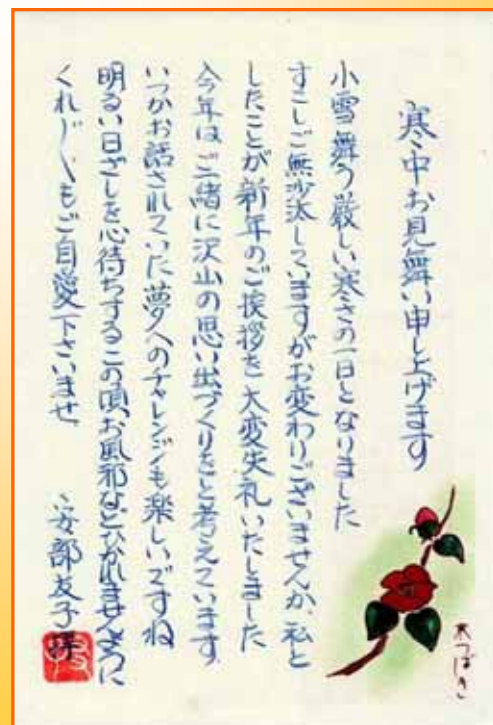 寒中お見舞い申し上げます
小雪舞う厳しい寒さの一日となりました
すこしご無沙汰していますがお変わりございませんか、私と
したことが新年のご挨拶を大変失礼いたしました
今年はご一緒に沢山の思い出づくりをと考えています
いつかお話されていた夢へのチャレンジも楽しいですね
明るい日ざしを心待ちするこの頃、お風邪などひかれませんように
くれ〴〵もご自愛下さいませ
安部友子
つばき